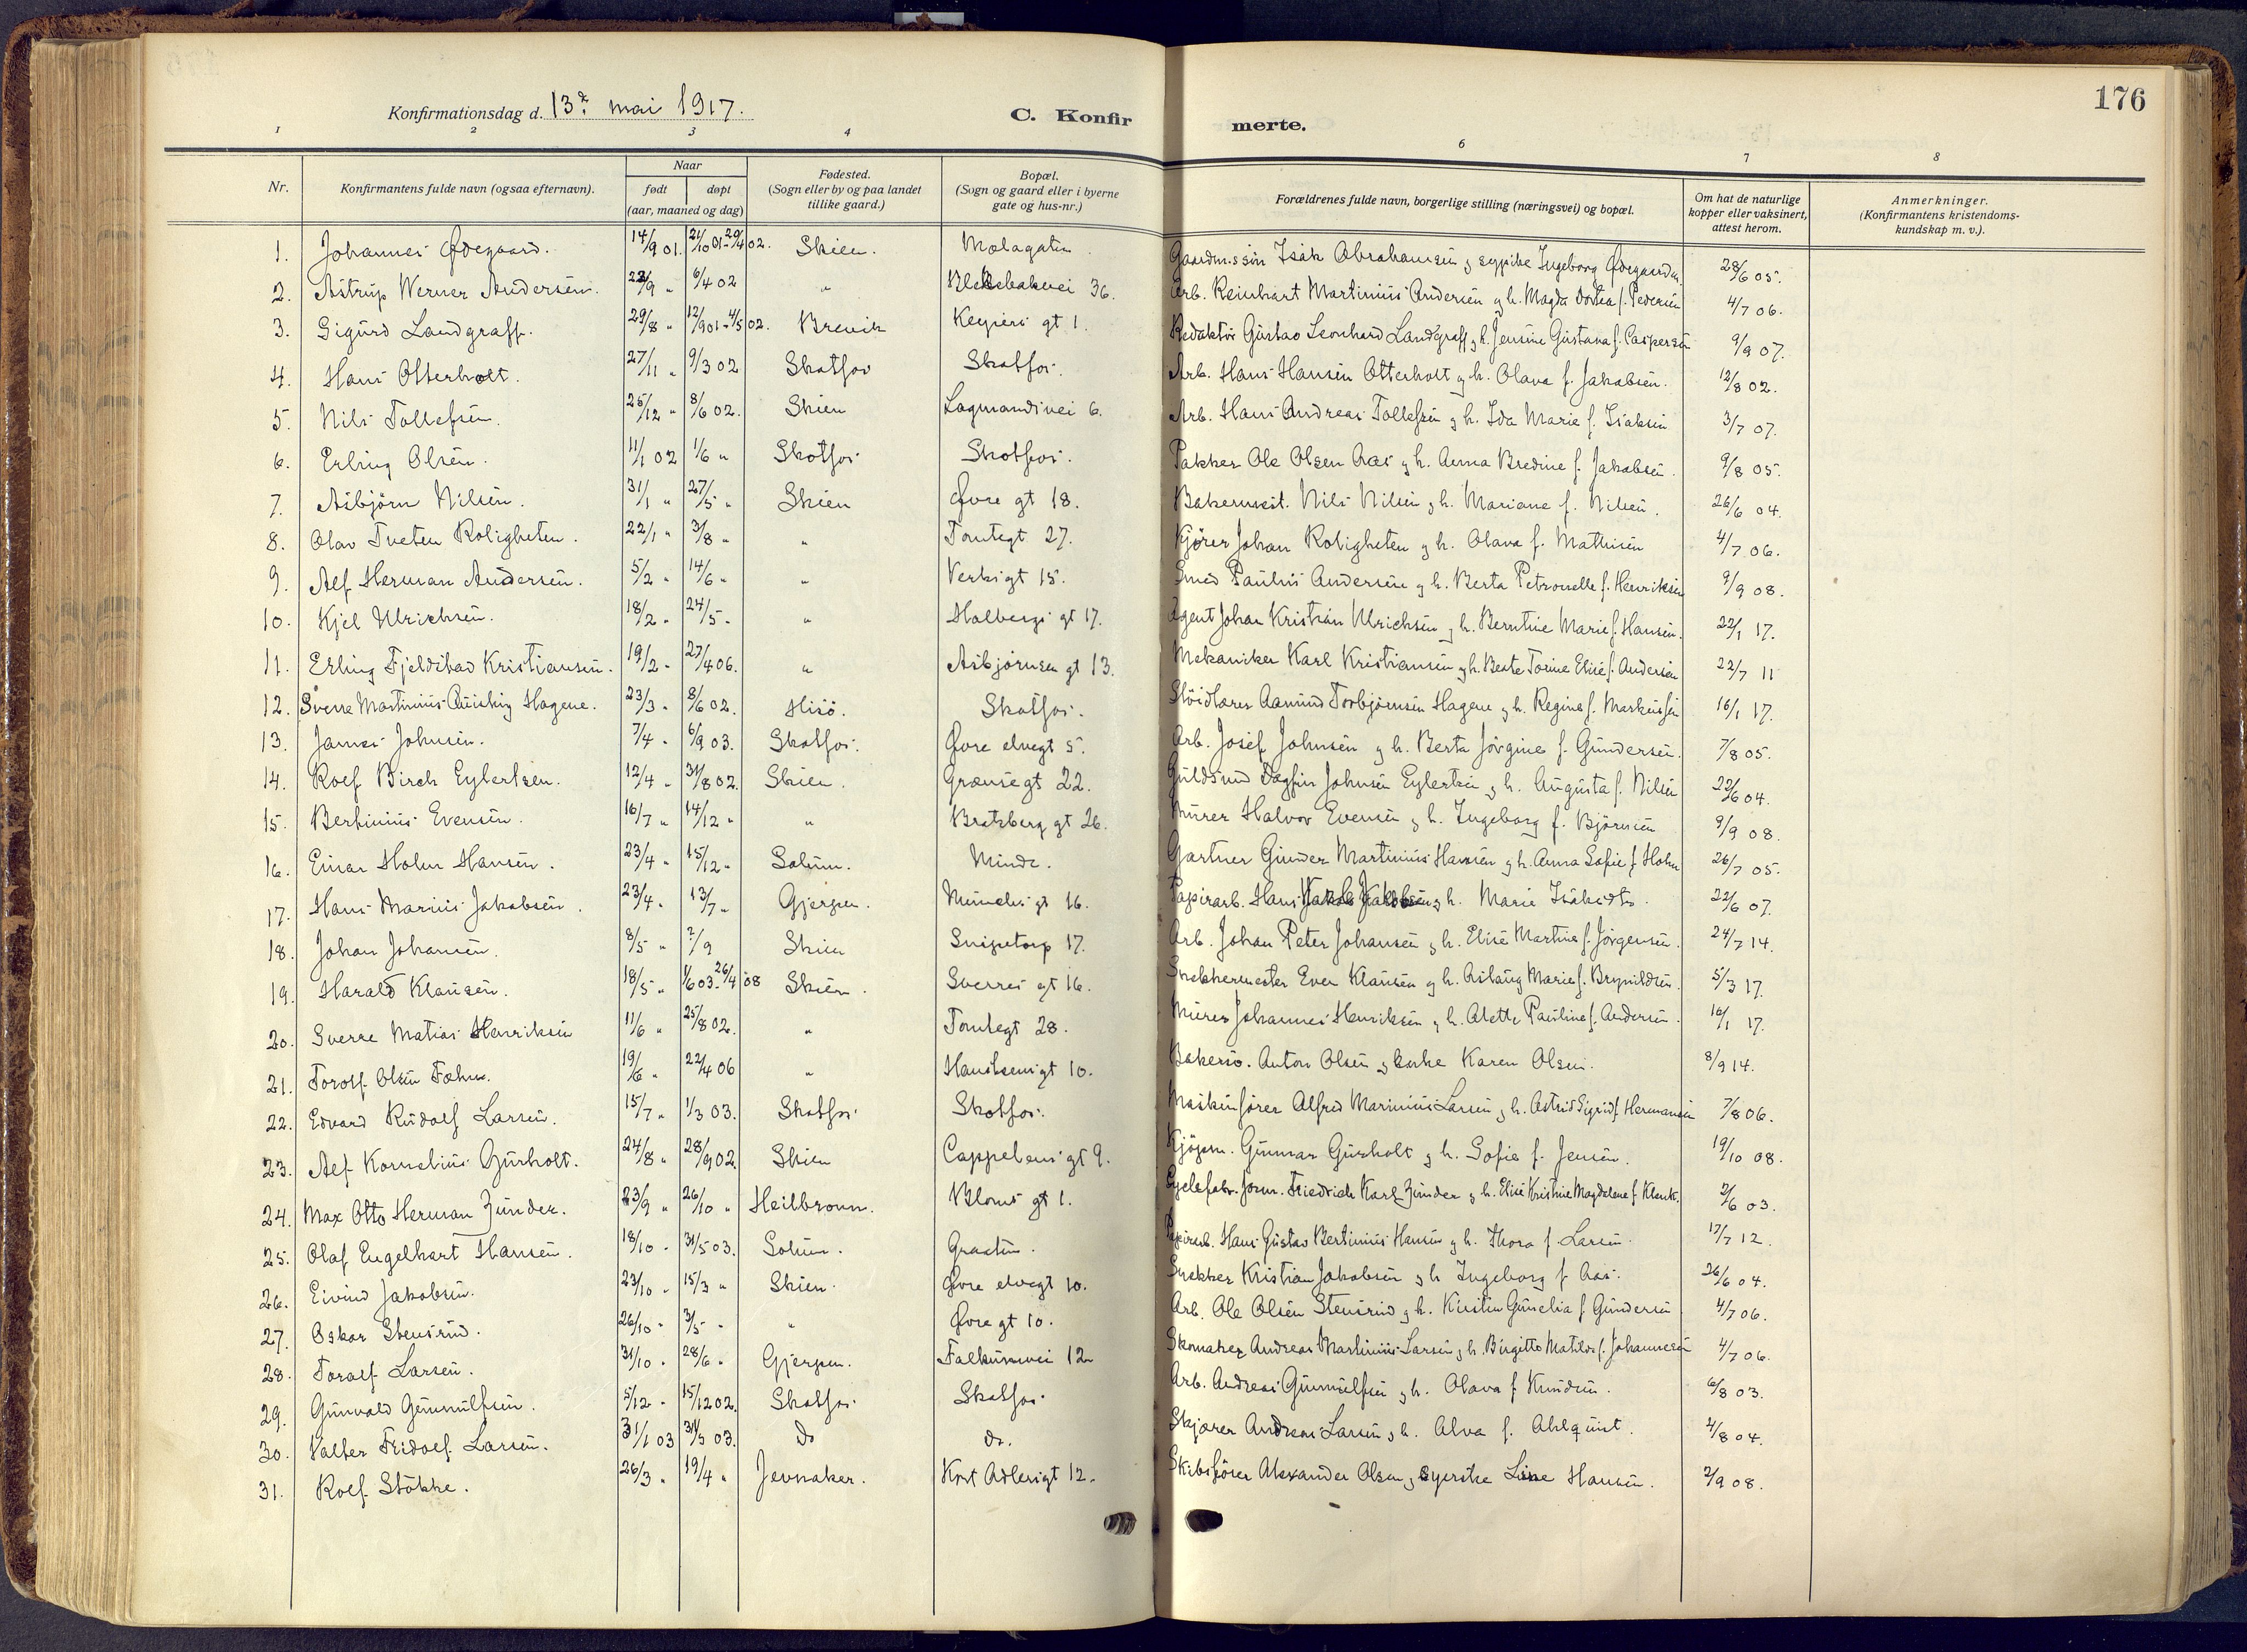 176
Konfirmationsdag d. 13de mai 1917.
C. Konfirmerte.
1 2 3 4 6 7 8
Nr. Konfirmantens fulde navn (ogsaa efternavn). Naar født døpt (aar, maaned og dag) Fødested. (Sogn eller by og paa landet tillike gaard.) Bopæl. (Sogn og gaard eller i byerne gate og hus-nr.) Forældrenes fulde navn, borgerlige stilling (næringsvei) og bopæl. Om hat de naturlige kopper eller vaksinert, attest herom. Anmerkninger. (Konfirmantens kristendomskundskap m. v.).
1. Johannes Ødegaard. 14/9 01. 21/10 01 - 29/4 02. Skien. Mælagaten Gaardm.søn Isak Abrahamsen og sypike Ingeborg Ødegaarden 28/6 05.
2. Astrup Werner Andersen. 22/9 " 6/4 02 " Blekebakvei 36. Arb. Reinhart Martinius Andersen og h. Magda Dortea f. Pedersen 4/7 06.
3. Sigurd Landgraff. 29/8 " 12/9 01 - 4/5 02. Brevik Keysers gt 1. Redaktør Gustav Leonhard Landgraff og h. Jensine Gustava f. Caspersen 9/9 07.
4. Hans Otterholt. 27/11 " 9/3 02 Skotfos Skotfos. Arb. Hans Hansen Otterholt og h. Olava f. Jakobsen. 12/8 02.
5. Nils Tollefsen. 25/12 " 8/6 02. Skien Lagmandsvei 6. Arb. Hans Andreas Tollefsen og h. Ida Marie f. Isaksen 3/7 07.
6. Erling Olsen. 11/1 02 1/6 " Skotfos Skotfos. Pakker Ole Olsen Aas og h. Anna Bredine f. Jakobsen. 9/8 05.
7. Asbjørn Nilsen. 31/1 " 27/5 " Skien Øvre gt 18. Bakermest. Nils Nilsen og h. Mariane f. Nilsen. 26/6 04.
8. Olav Tveten Roligheten. 22/1 " 3/8 " " Tomtegt 27. Kjører Johan Roligheten og h. Olava f. Mathisen 4/7 06.
9. Alf Herman Andersen. 5/2 " 14/6 " " Verksgt 15. Smed Paulus Andersen og h. Berta Petronelle f. Henriksen 9/9 08.
10. Kjel Ulrichsen. 18/2 " 24/5 " " Holbergs gt 17. Agent Johan Kristian Ulrichsen og h. Berntine Marie f. Hansen. 22/1 17.
11. Erling Fjeldstad Kristiansen. 19/2 " 27/4 06. " Asbjørnsen gt 13. Mekaniker Karl Kristiansen og h. Berte Torine Elise f. Andersen 22/7 11
12. Sverre Martinius Hagene. 23/3 " 8/6 02. Hisø. Skotfos. Sløidlærer Aamund Torbjørnsen Hagene og h. Regine f. Markussen 16/1 17.
13. James Johnsen. 7/4 " 6/9 03. Skotfos. Øvre elvegt 5. Arb. Josef Johnsen og h. Berta Jørgine f. Gundersen. 7/8 05.
14. Rolf Birch Eylertsen. 12/4 " 31/8 02. Skien. Grænsegt 22. Guldsmed Dagfin Johnsen Eylertsen og h. Augusta f. Nilsen 22/6 04.
15. Bertinius Evensen. 16/7 " 14/12 " " Bratsberg gt 26. Murer Halvor Evensen og h. Ingeborg f. Bjørnsen 9/9 08.
16. Einar Holm Hansen. 23/4 " 15/12 " Solum. Minde. Gartner Gunder Martinius Hansen og h. Anna Sofie f. Holm 26/7 05.
17. Hans Marius Jakobsen. 23/4 " 13/7 " Gjerpen. Munchs gt 16. Papirarb. Hans Jakob Jakobsen og h. Marie Isaksdtr. 22/6 07.
18. Johan Johansen. 8/5 " 7/9 Skien Snipetorp 17. Arb. Johan Peter Johansen og h. Elise Martine f. Jørgensen. 24/7 14.
19. Harald Klausen. 18/5 " 1/6 03 - 26/4 08 Skien. Sverres gt 16. Snekkermester Even Klausen og h. Aslaug Marie f. Brynildsen. 5/3 17.
20. Sverre Matias Henriksen 11/6 " 25/8 02. " Tomtegt 28. Murer Johannes Henriksen og h. Alette Pauline f. Andersen. 16/1 17.
21. Torolf Olsen Fæhn. 19/6 " 22/4 06 " Hansteensgt 10. Bakersv. Anton Olsen og Enke Karen Olsen. 8/9 14.
22. Edvard Rudolf Larsen. 15/7 " 1/3 03. Skotfos Skotfos. Maskinfører Alfred Marinius Larsen og h. Astrid Sigrid f. Hermansen 7/8 06.
23. Alf Kornelius Gurholt. 24/8 " 28/9 02. Skien Cappelens gt 9. Kjøpm. Gunnar Gurholt og h. Sofie f. Jensen. 19/10 08.
24. Max Otto Herman Zunder. 23/9 " 26/10 " Heilbronn. Bloms gt 1. Cyclefabr. form. Friedrich Karl Zunder og h. Elise Kristine Magdalene f. Klenk. 2/6 03.
25. Olaf Engelhart Hansen. 18/10 " 31/5 03. Solum. Graaten. Papirarb. Hans Gustav Bertinius Hansen og h. Thora f. Larsen. 17/7 12.
26. Eivind Jakobsen. 23/10 " 15/3 " Skien. Øvre elvegt 10. Snekker Kristian Jakobsen og h. Ingeborg f. Aas. 26/6 04.
27. Oskar Stensrud. 26/10 " 3/5 " " Øvre gt 10. Arb. Ole Olsen Stensrud og h. Kirstin Gunelia f Gundersen 4/7 06.
28. Toralf Larsen. 31/10 " 28/6 " Gjerpen. Falkumvei 12. Skomaker Andreas Martinius Larsen og h. Birgitte Matilde f. Johannesen 4/7 06.
29. Gunvald Gunnulfsen. 5/12 " 15/12 02. Skotfos Skotfos. Arb. Andreas Gunnulfsen og h. Olava f Knudsen. 6/8 03.
30. Valter Fridolf Larsen. 31/1 03 31/5 03. do do. Skjærer Andreas Larsen og h. Alva f. Ahlquist. 4/8 04.
31. Rolf Stökke. 26/3 " 19/4 " Jevnaker. Kort Adlersgt 12. Skibsfører Alexander Olsen og syerske Line Hansen. 2/9 08.